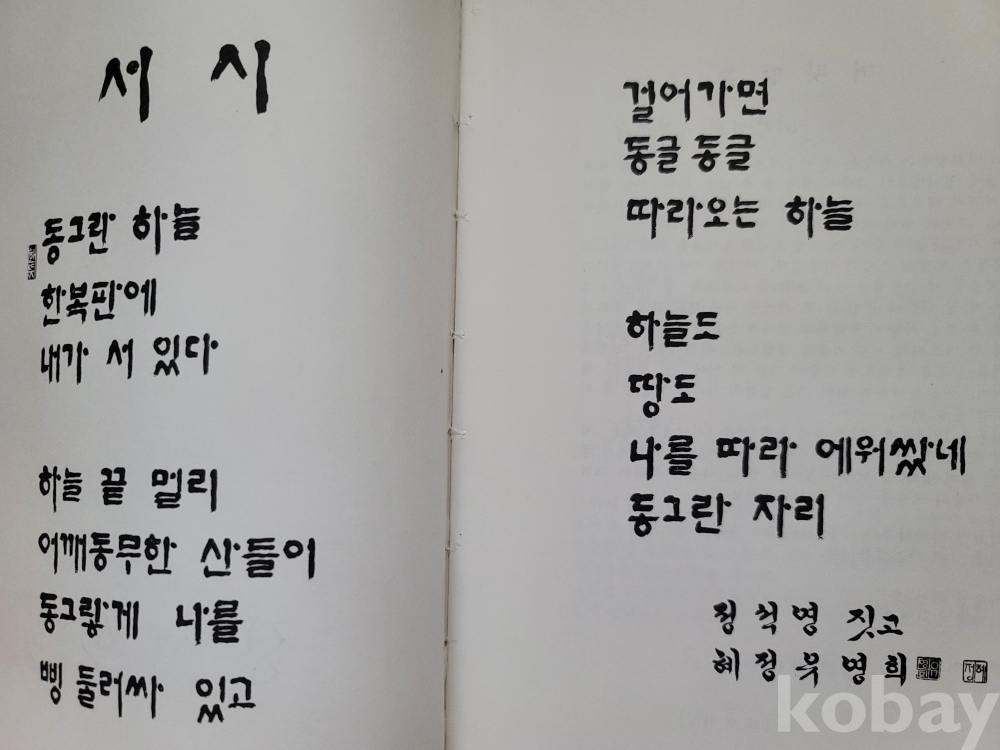 서 시
동그란 하늘
한복판에
내가 서 있다
하늘 끝 멀리
어깨동무한 산들이
동그랗게 나를
삥 둘러싸 있고
걸어가면
동글 동글
따라오는 하늘
하늘도
땅도
나를 따라 에워쌌네
동그란 자리
정석영 짓고
혜정 우영희
kobay